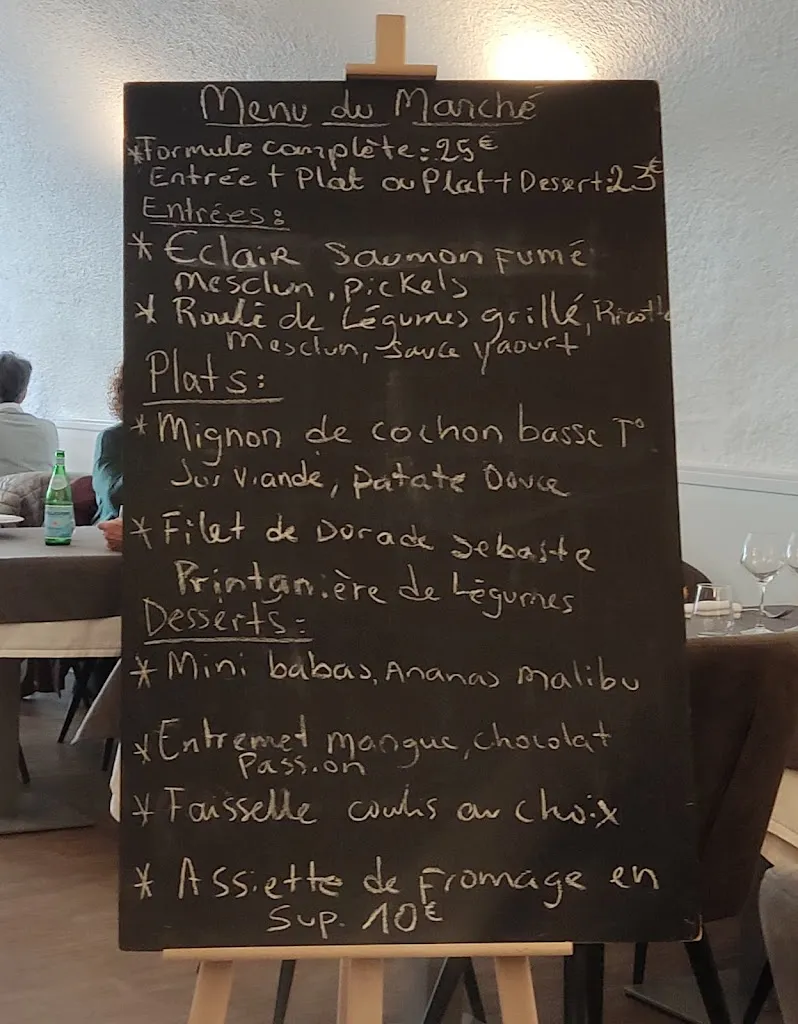 Menu du Marché
*Formule complète: 25€
Entrée + Plat ou Plat + Dessert: 23€
Entrées:
* Eclair Saumon Fumé
Mesclun, pickels
* Roulé de Légumes grillé, Ricotta
Mesclun, sauce yaourt
Plats:
* Mignon de cochon basse T°
Jus Viande, patate Douce
* Filet de Dorade Sebaste
Printanière de Légumes
Desserts:
* Mini babas, Ananas malibu
* Entremet mangue, chocolat
Passion
* Faisselle coulis au choix
* Assiette de Fromage en
Sup. 10€